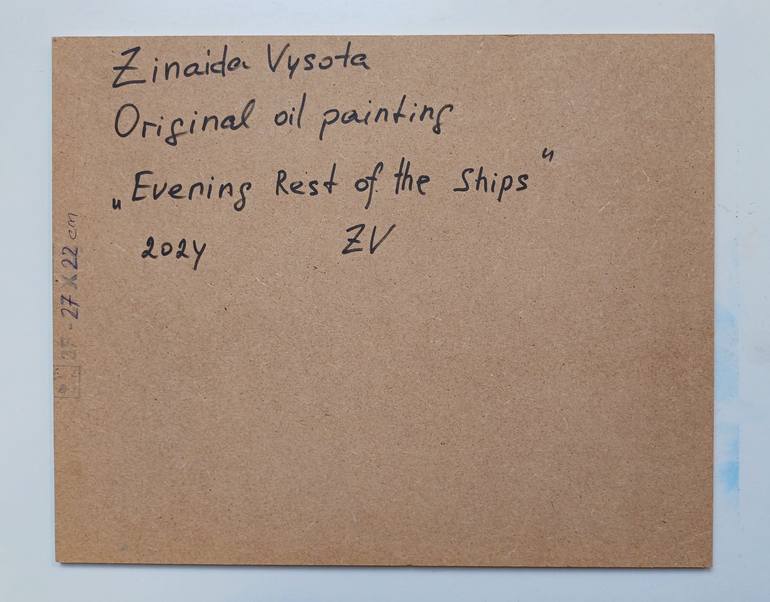 Zinaida Vysota
Original oil painting
„Evening Rest of the Ships"
2024 ZV
27 x 22 cm